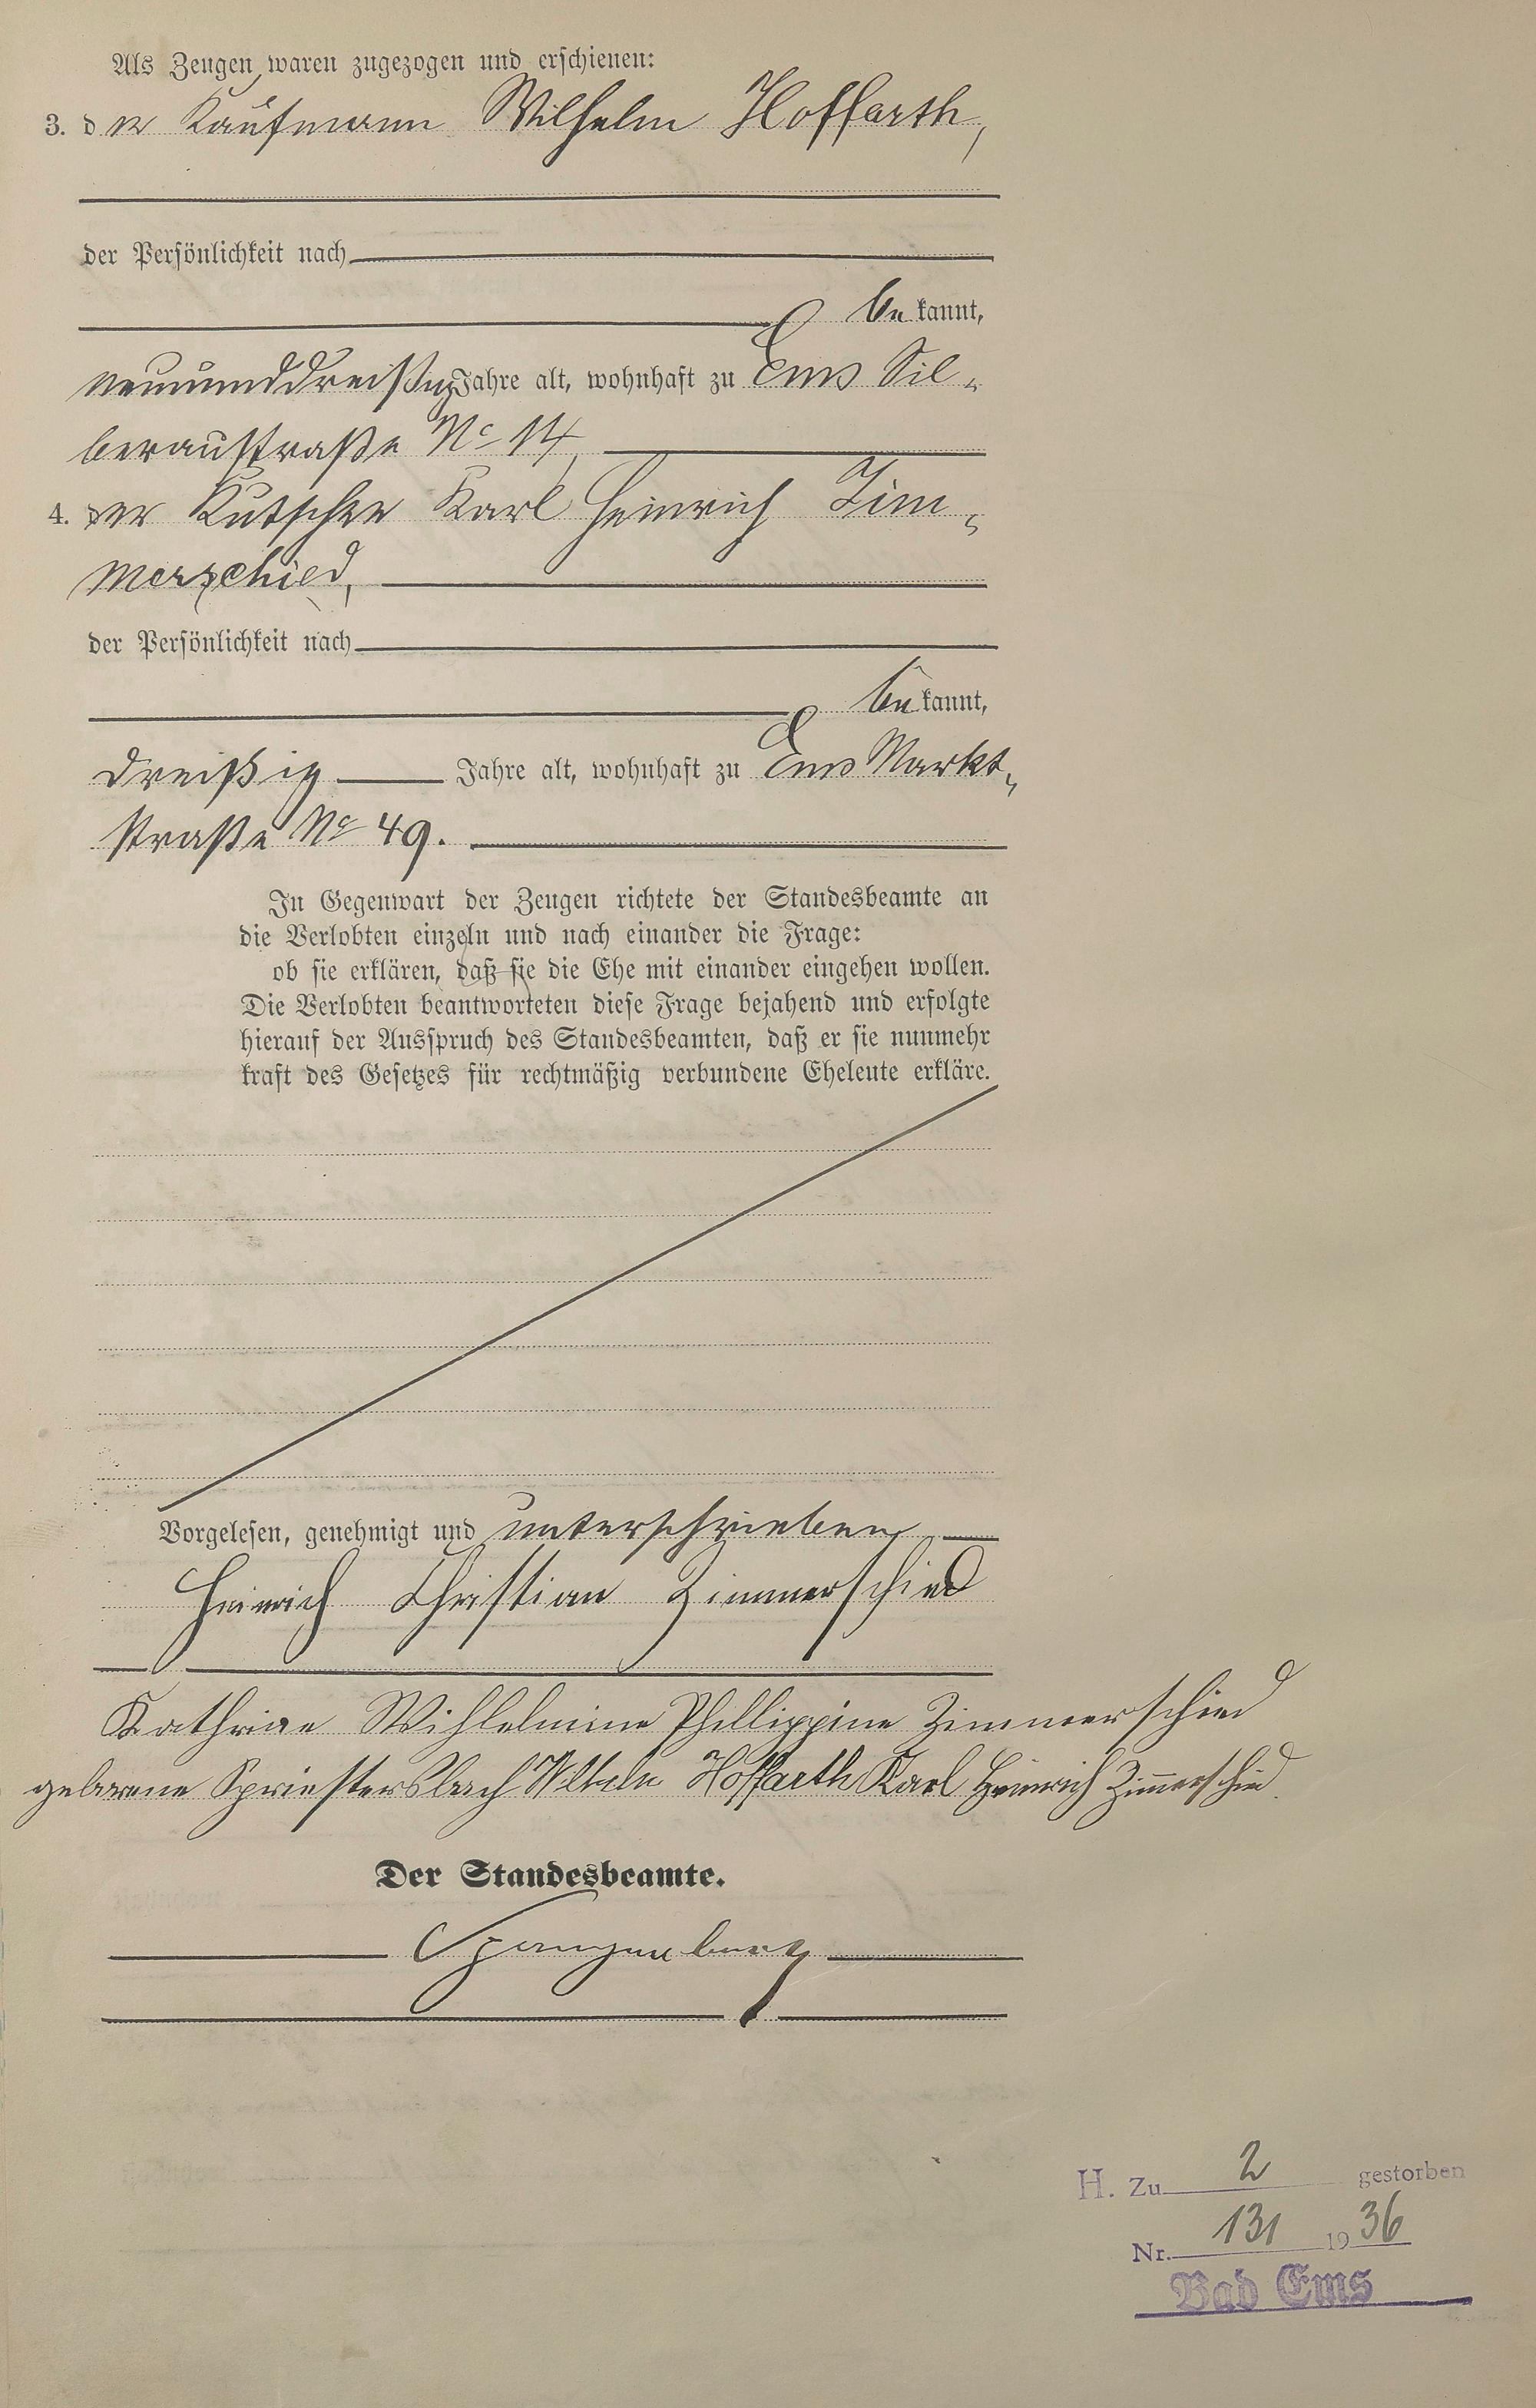 Als Zeugen waren zugezogen und erschienen:
3. der Kaufmann Wilhelm Hoffarth,
der Persönlichkeit nach
bekannt,
neununddreißig Jahre alt, wohnhaft zu Ems Sil-
beraustraße No 14,
4. der Kutscher Karl Heinrich Zim-
merschied,
der Persönlichkeit nach
bekannt,
dreißig Jahre alt, wohnhaft zu Ems Markt-
straße No 49.
In Gegenwart der Zeugen richtete der Standesbeamte an
die Verlobten einzeln und nach einander die Frage:
ob sie erklären, daß sie die Ehe mit einander eingehen wollen.
Die Verlobten beantworteten diese Frage bejahend und erfolgte
hierauf der Ausspruch des Standesbeamten, daß er sie nunmehr
kraft des Gesetzes für rechtmäßig verbundene Eheleute erkläre.
Vorgelesen, genehmigt und unterschrieben
Heinrich Christian Zimmerschied
Kathrine Wihlelmine Phillippine Zimmerschied
geborene Spriestersbach Wilhelm Hoffarth Karl Heinrich Zimmerschied.
Der Standesbeamte.
Spangenberg
H. Zu 2 gestorben
Nr. 131 1936
Bad Ems